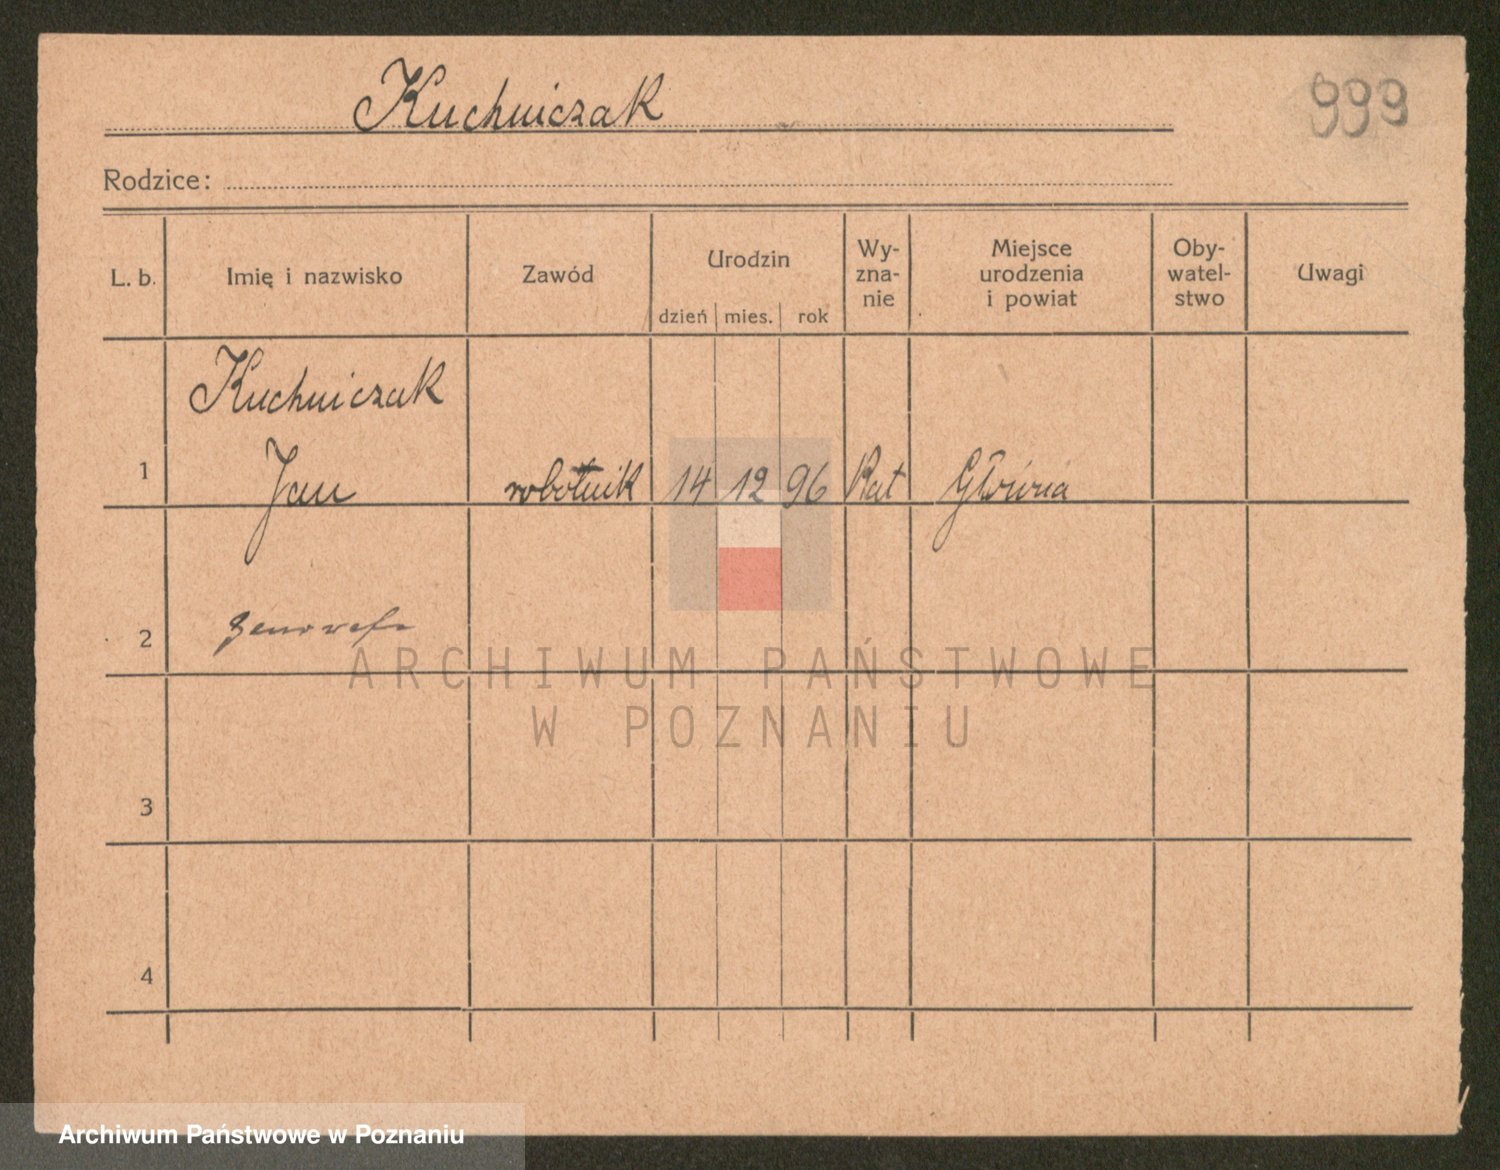 Kuchniczak
999
Rodzice:
L. b.
Imię i nazwisko
Zawód
Urodzin
dzień mies. rok
Wy-
zna-
nie
Miejsce
urodzenia
i powiat
Oby-
watel-
stwo
Uwagi
Kuchniczak
1 Jan robotnik 14 12 96 Kat Główna
2
3
4
ARCHIWUM PAŃSTWOWE
W POZNANIU
Archiwum Państwowe w Poznaniu